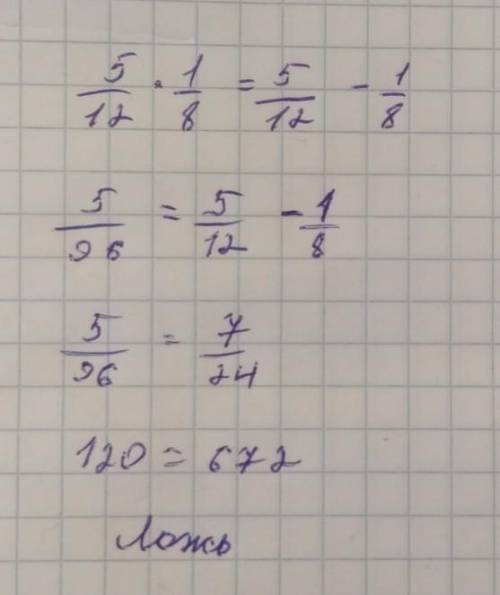 5/12 · 1/8 = 5/12 - 1/8
5/96 = 5/12 - 1/8
5/96 = 7/24
120 = 672
Ложь